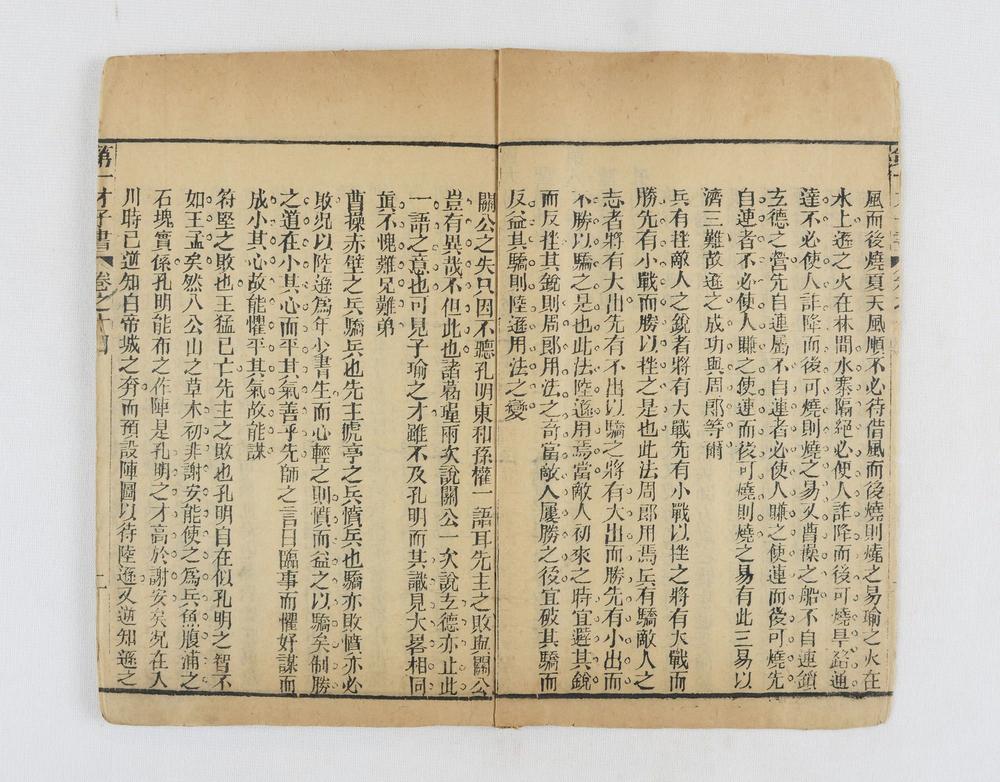 風而後燒夏天風順不必待借風而後燒則燒之易瑜之火在
水上遜之火在林間水寨隔絕必使人詐降而後可燒旱路通
達不必使人詐降而後可燒則燒之易又曹操之船不自連鎖
玄德之營先自連屬不自連者必使人賺之使連而後可燒先
自連者不必使人賺之使連而後可燒則燒之易有此三易以
濟三難故遜之成功與周郎等爾
兵有挫敵人之銳者將有大戰先有小戰以挫之將有大戰而
勝先有小戰而勝以挫之是也此法周郎用焉兵有驕敵人之
志者將有大出先有不出以驕之將有大出而勝先有小出而
不勝以驕之是也此法陸遜用焉當敵人初來之時宜避其銳
而反挫其銳則周郎用法之奇當敵人屢勝之後宜破其驕而
反益其驕則陸遜用法之變
關公之失只因不聽孔明東和孫權一語耳先主之敗與關公
豈有異哉不但此也諸葛瑾兩次說關公一次說玄德亦止此
一語之意也可見子瑜之才雖不及孔明而其識見大畧相同
眞不愧難兄難弟
曹操赤壁之兵驕兵也先主猇亭之兵憤兵也驕亦敗憤亦必
敗況以陸遜爲年少書生而心輕之則憤而益之以驕矣制勝
之道在小其心而平其氣善乎先師之言曰臨事而懼好謀而
成小其心故能懼平其氣故能謀
符堅之敗也王猛已亡先主之敗也孔明自在似孔明之智不
如王孟矣然八公山之草木初非謝安能使之爲兵魚腹浦之
石塊實係孔明能布之作陣是孔明之才高於謝安矣況在入
川時已逆知白帝城之奔而預設陣圖以待陸遜又逆知遜之
第一才子書 卷之十四